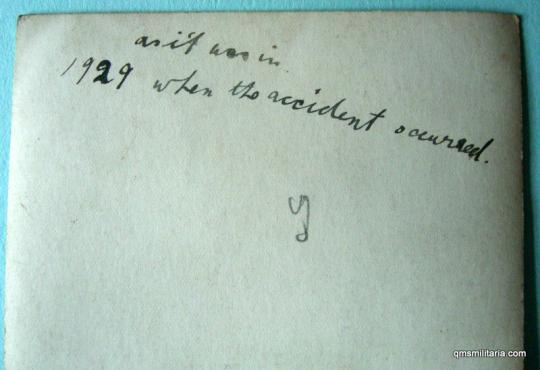 as if was in.
1929 when the accident occurred.
y
qmsmilitaria.com